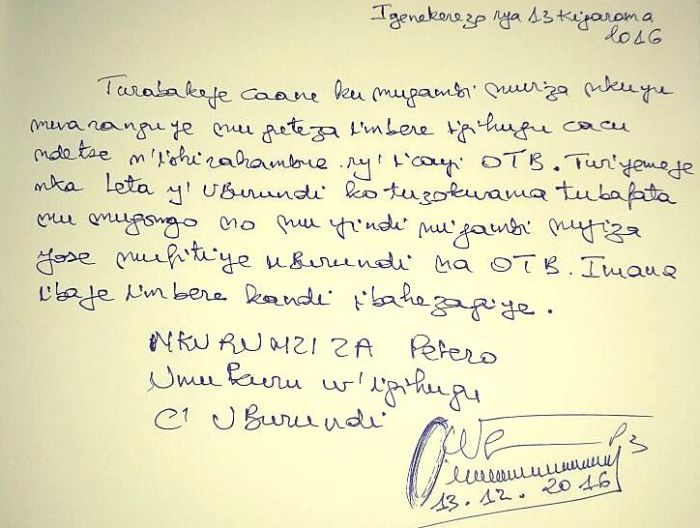 Igenekerezo rya 13 Kigarama
2016
Turabakeje caane ku mugambi mwiza nkuyu
mwaranguye mu guteza imbere igihugu cacu
ndetse n'ishirahambwe ry'icayi OTB. Turiyemeje
nka Leta y'UBurundi ko tuzokwama tubafata
mu mugongo no mu yindi migambi myiza
yose mufitiye uBurundi na OTB. Imana
ibaje imbere kandi ibahezagiye.
NKURUNZIZA Petero
Umukuru w'igihugu
C'UBurundi
13.12.2016